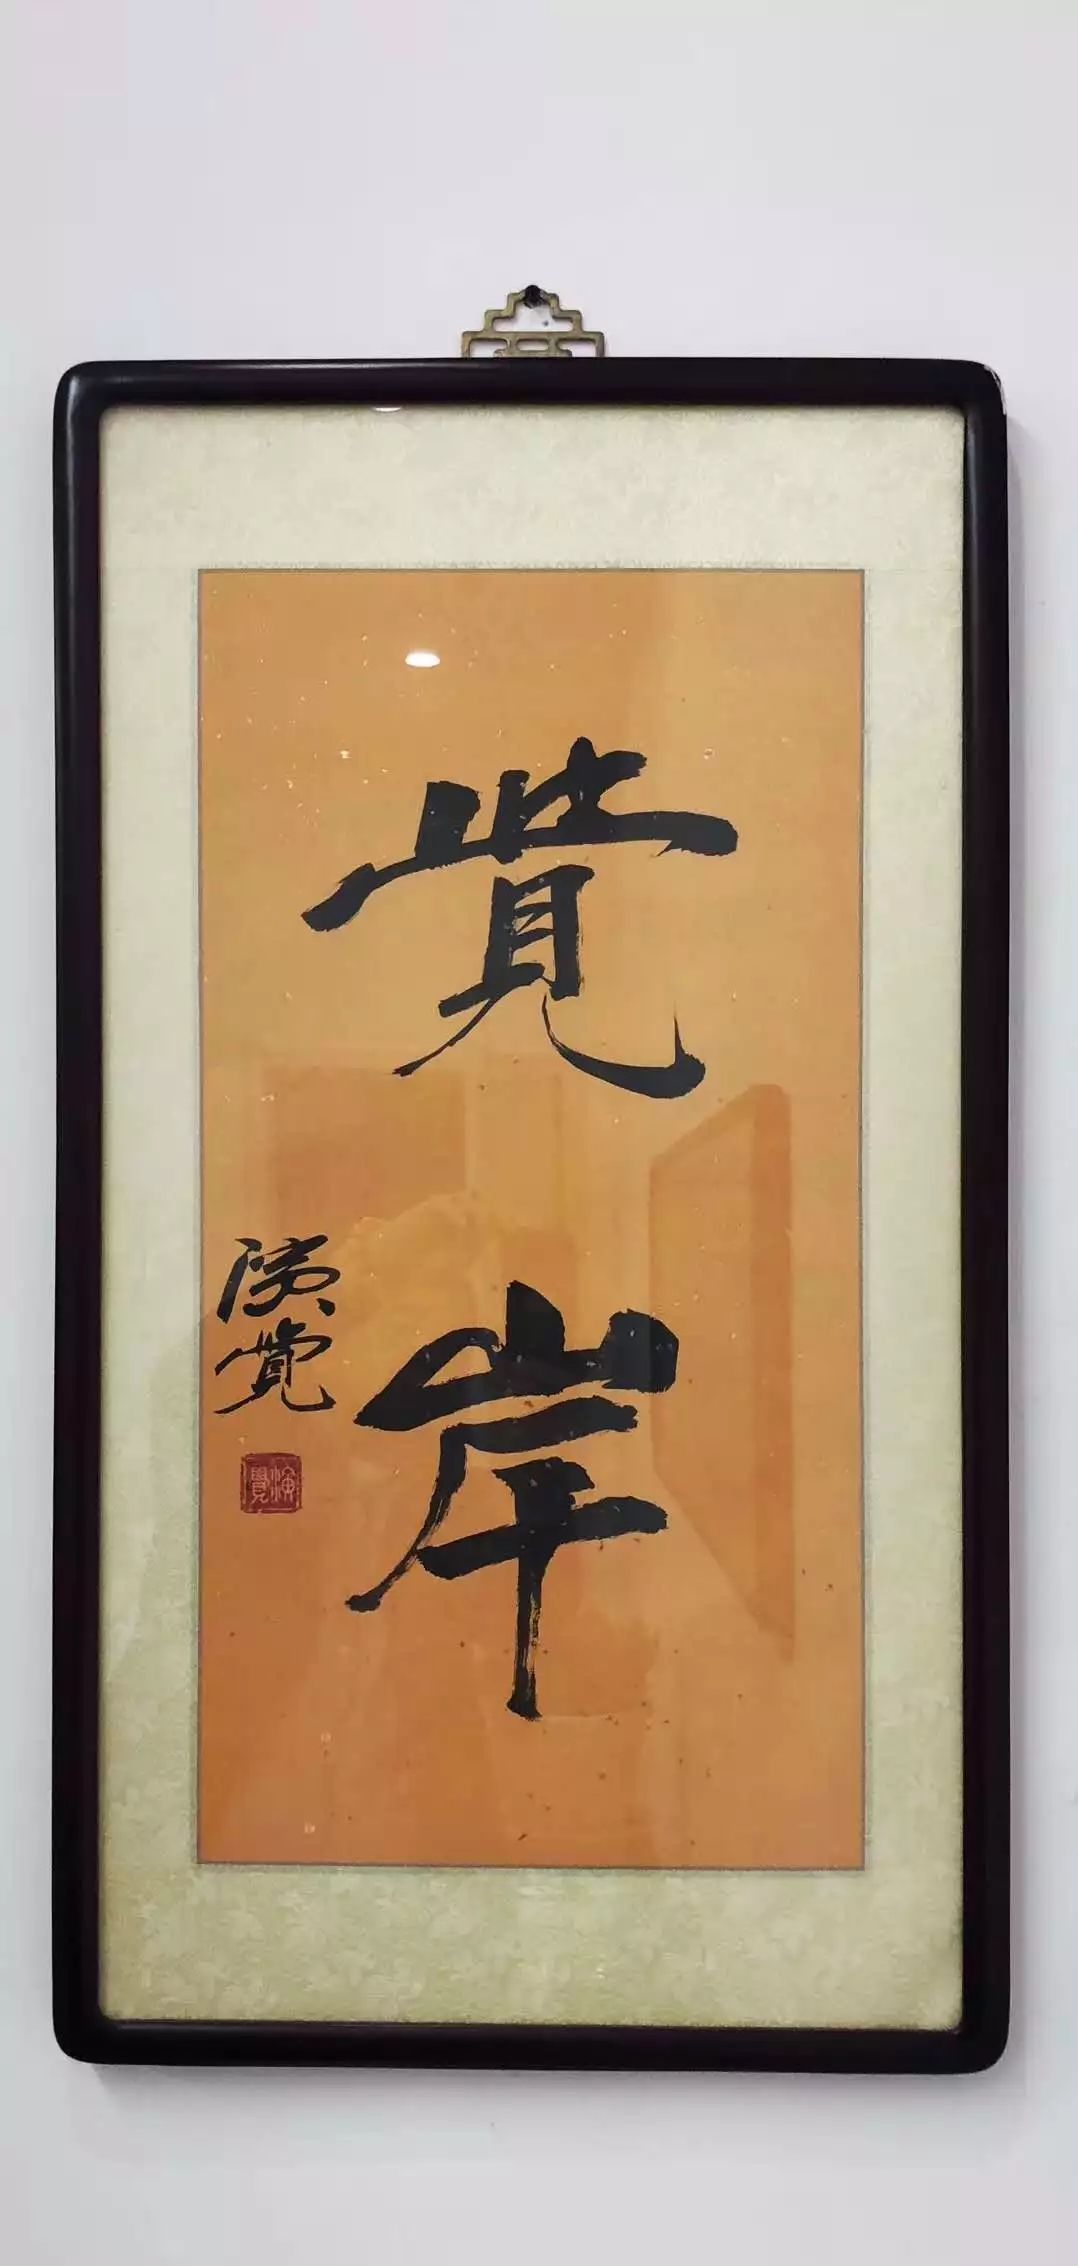 覺岸
演覺